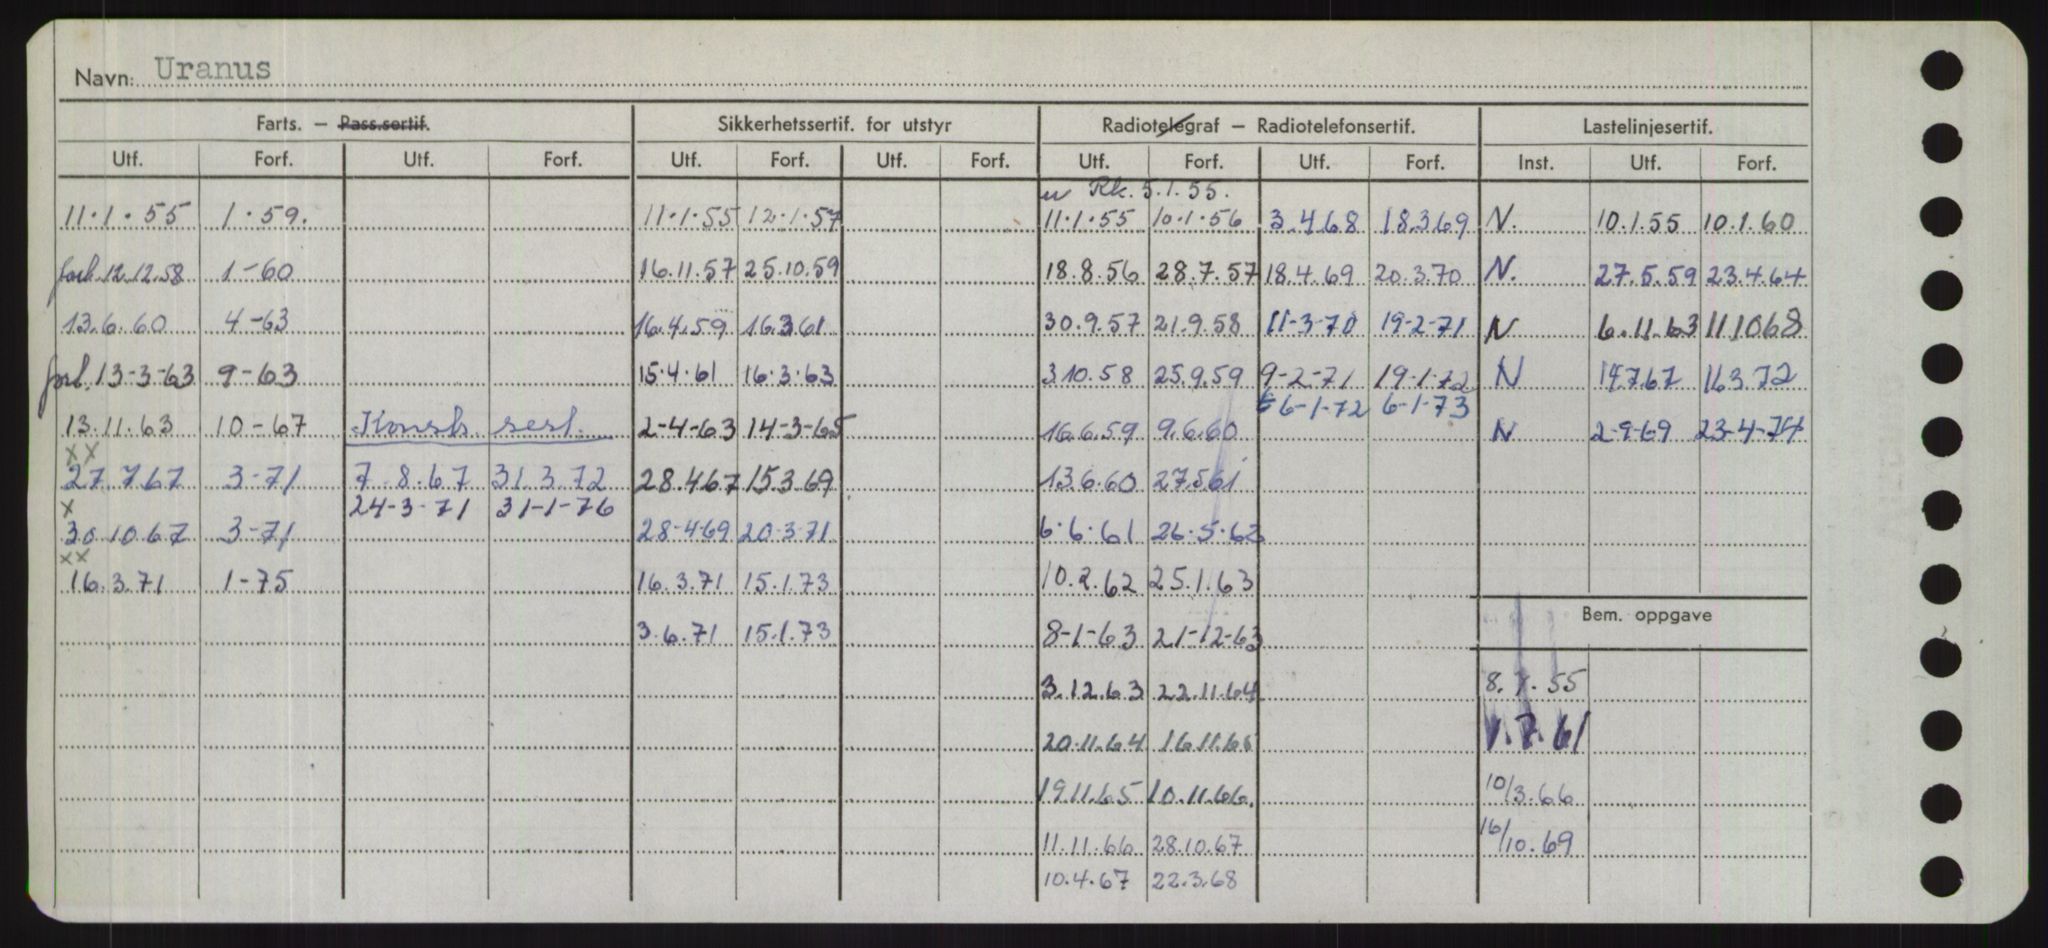 Navn: Uranus
Farts. — Pass.sertif. Sikkerhetssertif. for utstyr Radiotelegraf — Radiotelefonsertif. Lastelinjesertif.
Utf. Forf. Utf. Forf. Utf. Forf. Utf. Forf. Utf. Forf. Utf. Forf. Inst. Utf. Forf.
Rk. 5.1.55.
11.1.55 1.59. 11.1.55 12.1.57 11.1.55 10.1.56 3.4.68 18.3.69 N. 10.1.55 10.1.60
forl. 12.12.58 1-60 16.11.57 25.10.59 18.8.56 28.7.57 18.4.69 20.3.70 N. 27.5.59 23.4.64
13.6.60 4-63 16.4.59 16.3.61 30.9.57 21.9.58 11-3-70 19-2-71 N 6.11.63 11.10.68
forl. 13-3-63 9-63 15.4.61 16.3.63 3.10.58 25.9.59 9-2-71 19-1-72 N 14.7.67 16.3.72
6-1-72 6-1-73
13.11.63 10-67 Konstr. sert. 2-4-63 14-3-65 16.6.59 9.6.60 N 2-9-69 23-4-74
xx
27.7.67 3-71 7.8.67 31.3.72 28.4.67 15.3.69 13.6.60 27.5.61
x 24-3-71 31-1-76
30.10.67 3-71 28-4-69 20-3-71 6.6.61 26.5.62
xx
16.3.71 1-75 16.3.71 15.1.73 10.2.62 25.1.63
Bem. oppgave
3.6.71 15.1.73 8-1-63 21-12-63
3.12.63 22.11.64 8.7.55
20.11.64 16.11.65 1.7.61
19.11.65 10.11.66. 10/3.66
11.11.66 28.10.67 16/10.69
10.4.67 22.3.68